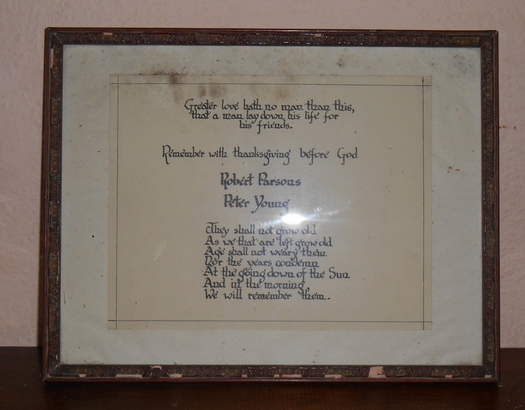 Greater love hath no man than this,
that a man lay down his life for
his friends.
Remember with thanksgiving before God
Robert Parsons
Peter Young
They shall not grow old
As we that are left grow old
Age shall not weary them
Nor the years condemn
At the going down of the Sun
And in the morning,
We will remember them.